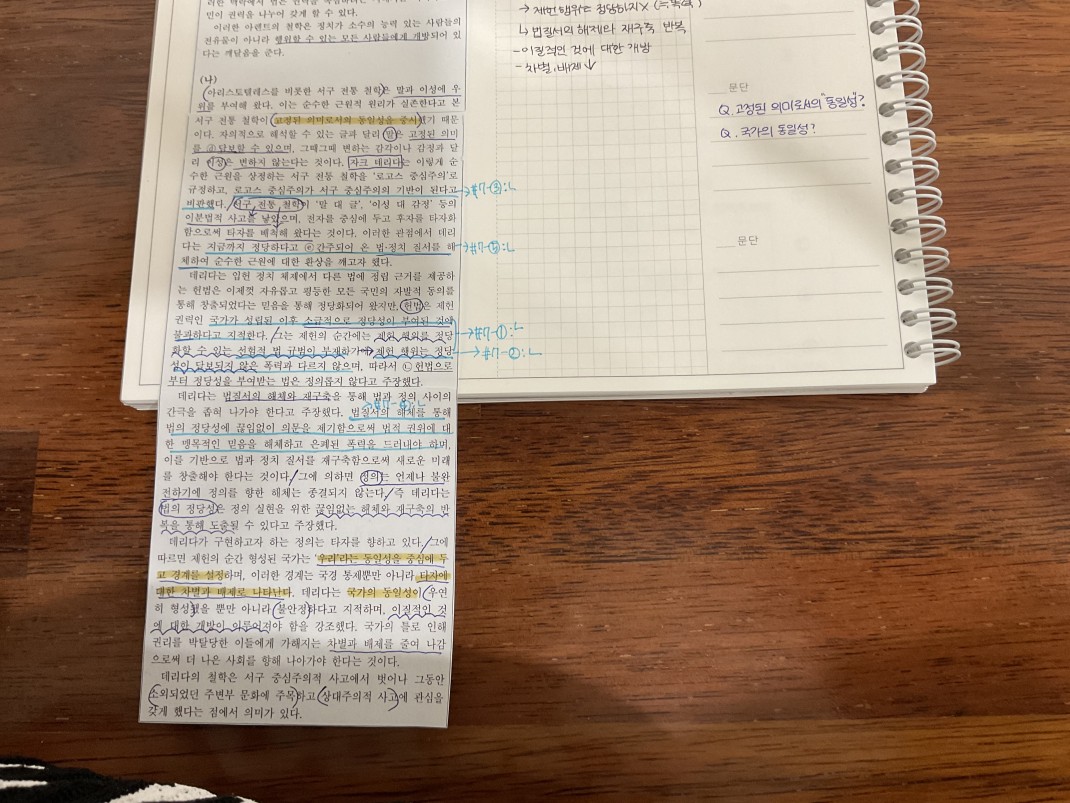 민이 권력을 나누어 갖게 할 수 있다.
이러한 아렌트의 철학은 정치가 소수의 능력 있는 사람들의
전유물이 아니라 행위할 수 있는 모든 사람들에게 개방되어 있
다는 깨달음을 준다.
(나)
아리스토텔레스를 비롯한 서구 전통 철학은 말과 이성에 우
위를 부여해 왔다. 이는 순수한 근원적 원리가 실존한다고 본
서구 전통 철학이 고정된 의미로서의 동일성을 중시했기 때문
이다. 자의적으로 해석할 수 있는 글과 달리 말은 고정된 의미
를 ⓓ담보할 수 있으며, 그때그때 변하는 감각이나 감정과 달
리 이성은 변하지 않는다는 것이다. 자크 데리다는 이렇게 순
수한 근원을 상정하는 서구 전통 철학을 '로고스 중심주의'로
규정하고, 로고스 중심주의가 서구 중심주의의 기반이 된다고
비판했다. 서구 전통 철학이 '말 대 글', '이성 대 감정' 등의
이분법적 사고를 낳았으며, 전자를 중심에 두고 후자를 타자화
함으로써 타자를 배척해 왔다는 것이다. 이러한 관점에서 데리
다는 지금까지 정당하다고 ⓔ간주되어 온 법·정치 질서를 해
체하여 순수한 근원에 대한 환상을 깨고자 했다.
데리다는 입헌 정치 체제에서 다른 법에 정립 근거를 제공하
는 헌법은 이제껏 자유롭고 평등한 모든 국민의 자발적 동의를
통해 창출되었다는 믿음을 통해 정당화되어 왔지만, 헌법은 제헌
권력인 국가가 성립된 이후 소급적으로 정당성이 부여된 것에
불과하다고 지적한다. 그는 제헌의 순간에는 제헌 행위를 정당
화할 수 있는 선험적 법 규범이 부재하기에 제헌 행위는 정당
성이 담보되지 않은 폭력과 다르지 않으며, 따라서 ㉡헌법으로
부터 정당성을 부여받는 법은 정의롭지 않다고 주장했다.
데리다는 법질서의 해체와 재구축을 통해 법과 정의 사이의
간극을 좁혀 나가야 한다고 주장했다. 법질서의 해체를 통해
법의 정당성에 끊임없이 의문을 제기함으로써 법적 권위에 대
한 맹목적인 믿음을 해체하고 은폐된 폭력을 드러내야 하며,
이를 기반으로 법과 정치 질서를 재구축함으로써 새로운 미래
를 창출해야 한다는 것이다. 그에 의하면 정의는 언제나 불완
전하기에 정의를 향한 해체는 종결되지 않는다. 즉 데리다는
법의 정당성은 정의 실현을 위한 끊임없는 해체와 재구축의 반
복을 통해 도출될 수 있다고 주장했다.
데리다가 구현하고자 하는 정의는 타자를 향하고 있다. 그에
따르면 제헌의 순간 형성된 국가는 '우리'라는 동일성을 중심에 두
고 경계를 설정하며, 이러한 경계는 국경 통제뿐만 아니라 타자에
대한 차별과 배제로 나타난다. 데리다는 국가의 동일성이 우연
히 형성됐을 뿐만 아니라 불안정하다고 지적하며, 이질적인 것
에 대한 개방이 이루어져야 함을 강조했다. 국가의 틀로 인해
권리를 박탈당한 이들에게 가해지는 차별과 배제를 줄여 나감
으로써 더 나은 사회를 향해 나아가야 한다는 것이다.
데리다의 철학은 서구 중심주의적 사고에서 벗어나 그동안
소외되었던 주변부 문화에 주목하고 상대주의적 사고에 관심을
갖게 했다는 점에서 의미가 있다.
#7-③:ㄴ
#7-⑤:ㄴ
#7-①:ㄴ
#7-②:ㄴ
#7-④:ㄴ
→ 제헌행위는 정당하지X (=폭력)
↳ 법질서의 해체와 재구축 반복
- 이질적인 것에 대한 개방
- 차별, 배제↓
문단
Q. 고정된 의미로서의 "동일성"?
Q. 국가의 동일성?
문단